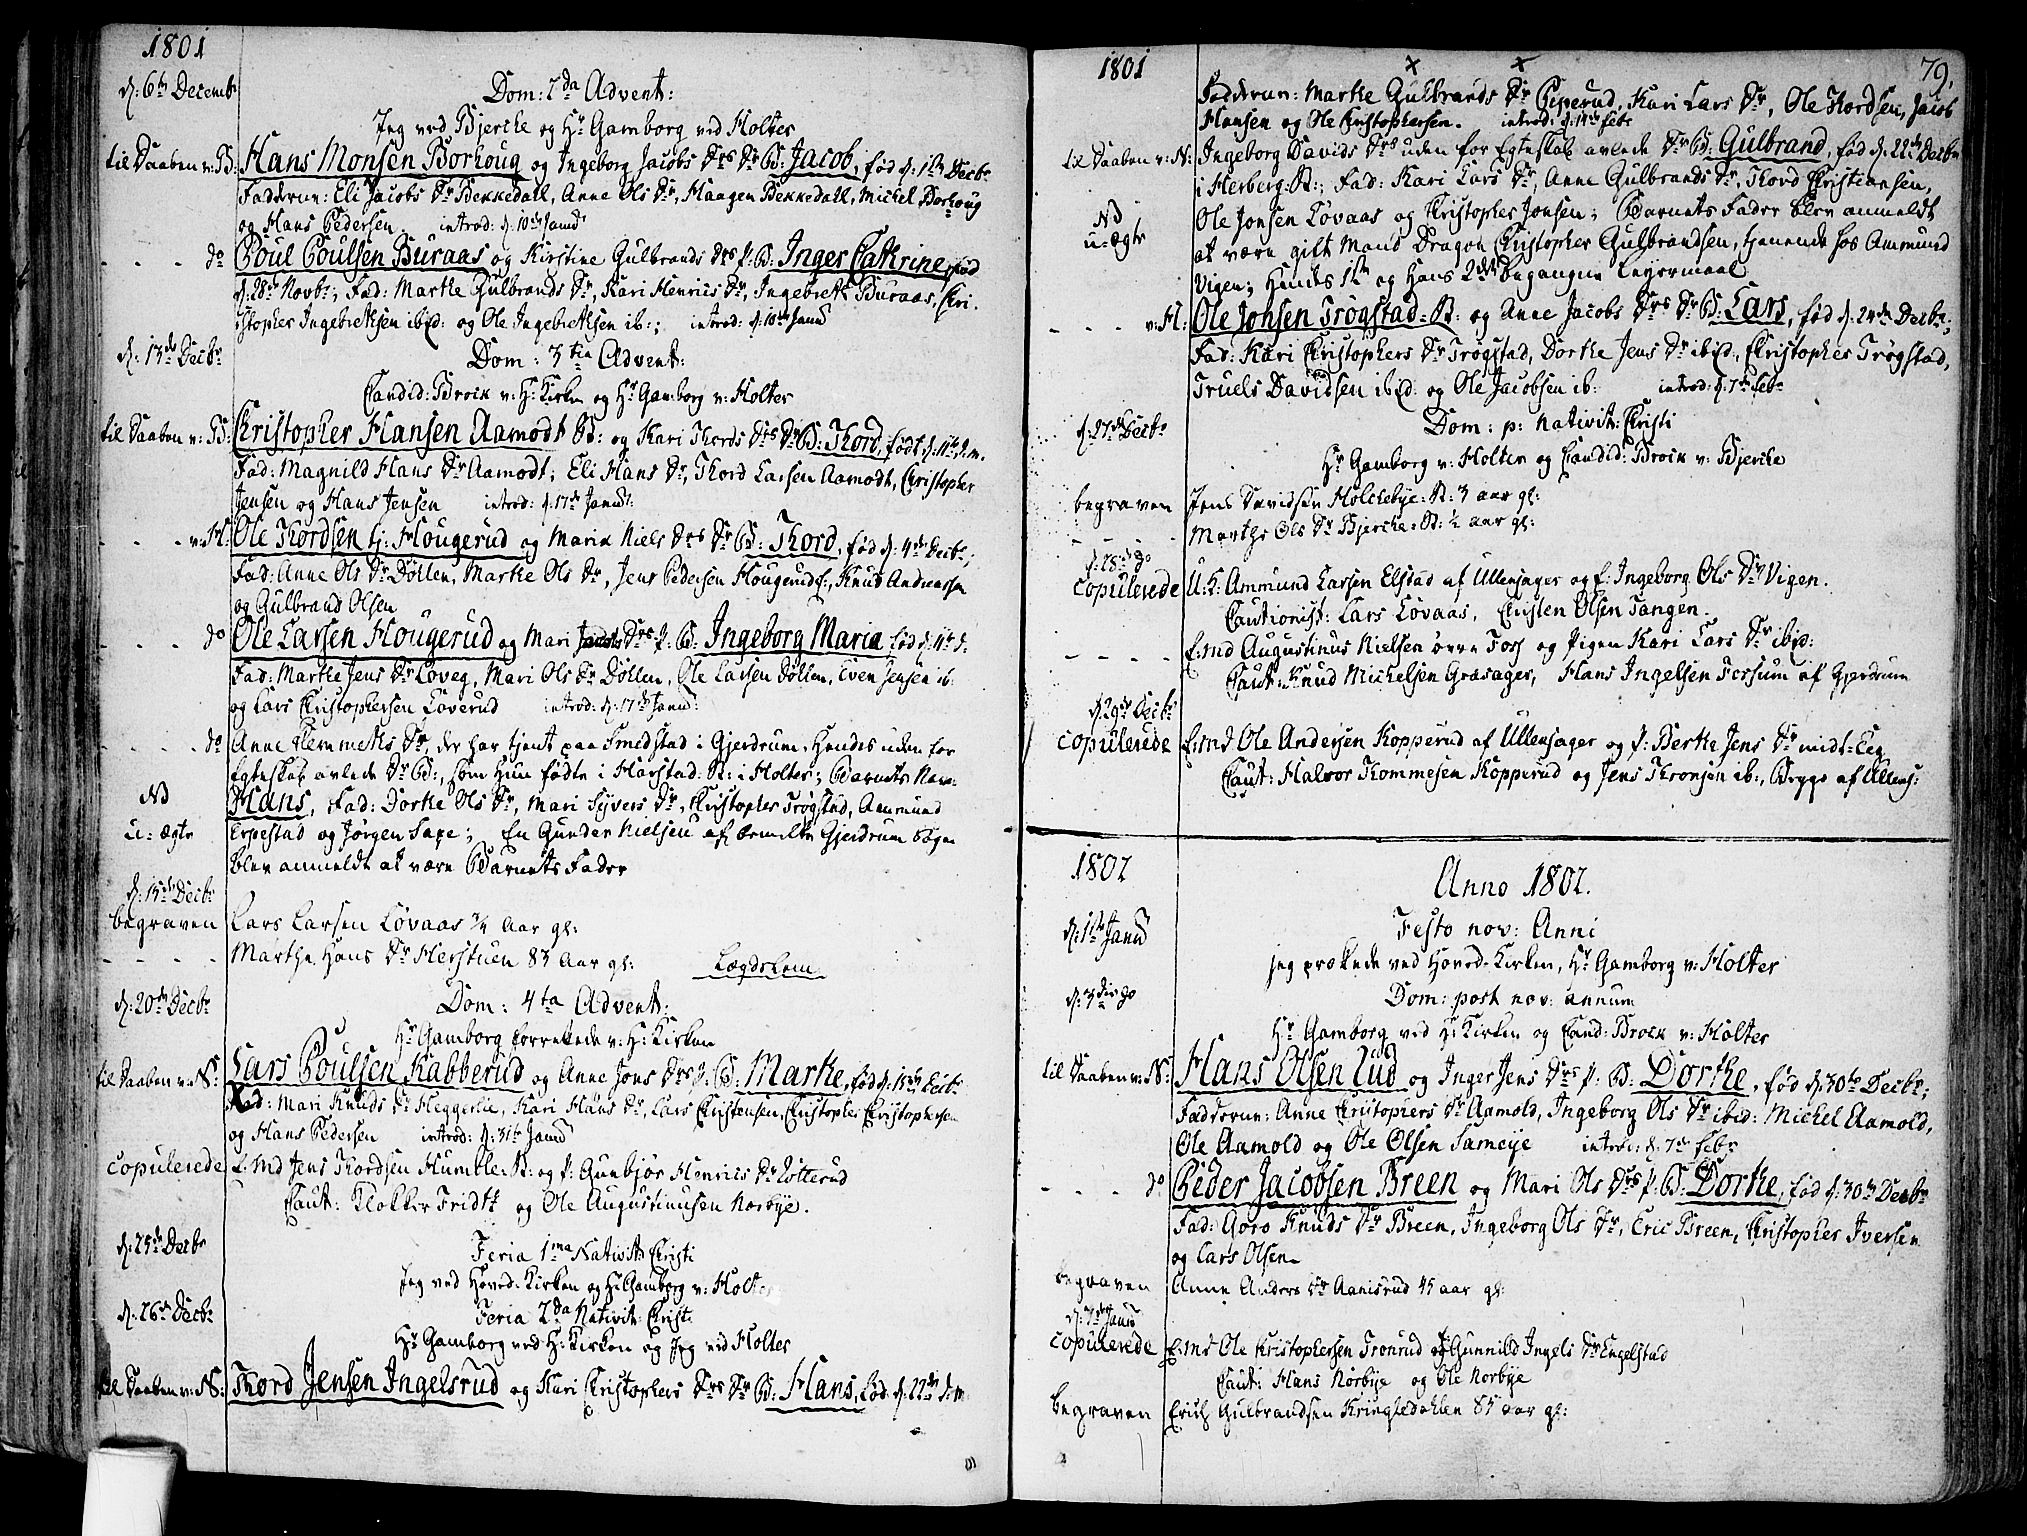 1801
d: 6te Decembr
Dom: 2da Advent:
Jeg ved Bjercke og Hr Gamborg ved Holter
til Daaben v: B: Hans Monsen Borhoug og Ingeborg Jacobs Drs Dr B: Jacob, fød d: 1ste Decbr
Fadderne: Eli Jacobs Dr Bekkedall, Anne Ols Dr, Haagen Bekkedall, Michel Borhoug
og Hans Pedersen. introd: d: 10de Janud
- - - do Poul Poulsen Buraas og Kirstine Gulbrands Drs p: B: Inger Cathrine, fød
d: 28de Novbr; Fad: Marthe Gulbrands Dr, Kari Henrics Dr, Ingebreth Buraas, Chri-
stopher Ingebrethsen ibid: og Ole Ingebrethsen ib:; introd: d: 10de Janud
d: 13de Decbr
Dom: 3tia Advent:
Candid: Brock v: H: Kirken og Hr Gamborg v: Holter
til Daaben v: B: Christopher Hansen Aamodt B: og Kari Thords Drs Dr B: Thord, født d: 11te d. m.
Fad: Magnild Hans Dr Aamodt, Eli Hans Dr, Thord Larsen Aamodt, Christopher
Jensen og Hans Jensen introd: d: 17de Janud:
- - - v: H: Ole Thordsen tj: Hougerud og Maria Niels Drs Dr B: Thord, fød d: 4de Decbr;
Fad: Anne Ols Dr Döllen, Marthe Ols Dr, Jens Pedersen Hougerud, Knud Andreasen
og Gulbrand Olsen
- - - do Ole Larsen Hougerud og Mari Jacobs Drs p: B: Ingeborg Maria fød d: 4de d:
Fad: Marthe Jens Dr Loveg, Mari Ols Dr Döllen, Ole Larsen Döllen, Even Jensen ib:
og Lars Christophersen Loverud introd: d: 17de Janud:
- - - do Anne Clemmeths Dr, der har tjent paa Smedstad i Gjerdrum, Hendes uden for
Egteskab avlede Dr B:, som hun fødte i Harstad: B: i Holter; Barnets Navn
NB Hans, Fad: Dorthe Ols Dr, Mari Syvers Dr, Christopher Trøgstad, Ammund
u: ægte Erpestad og Jørgen Saxe; En Gunder Nielsen af bemelte Gjerdrum Sogn
blev anmeldt at være Barnets Fader
d: 15de Decbr
begraven Lars Larsen Løvaas 3/4 Aar gl:
- - - - Marthe Hans Dr Herstuen 83 Aar gl: Lægdslem
d: 20de Decbr
Dom: 4ta Advent:
Hr Gamborg forrettede v: H: Kirken
til Daaben v: N: Lars Poulsen Kabberud og Anne Jons Drs p: B: Marthe, fød d: 15de Decbr
Fad: Mari Knuds Dr Heggerlie, Kari Hans Dr, Lars Christensen, Christopher Christophersen
og Hans Pedersen introd: d: 31te Janud
copulerede E: md Jens Thordsen Humble: B: og p: Gunbjør Henrics Dr Lotterud
Caut: Klokker Fridtz og Ole Augustinusen Norbye.
d: 25de Decbr
Feria 1ma Nativit: Christi
Jeg ved Hoved-Kirken og Hr Gamborg v: Holter
d: 26de Decbr
Feria 2da Nativit: Christi
Hr Gamborg ved H: Kirken og Jeg ved Holter
til Daaben v: N: Thord Jensen Ingelsrud og Kari Christophers Drs Dr B: Hans, fød d: 22de d: m:
1801
79.
Fadderne: Marthe Gulbrands Dr Piperud, Kari Lars Dr, Ole Thordsen, Jacob
Hansen og Ole Christophersen. introd: d: 14de Febr
til Daaben v: N: Ingeborg Davids Drs uden for Egteskab avlede Dr B: Gulbrand, fød d: 22de Decbr
i Herberg: B:; Fad: Kari Lars Dr, Anne Gulbrands Dr, Thord Christiansen,
NB Ole Jonsen Løvaas og Christopher Jonsen; Barnets Fader blev anmeldt
u: ægte at være gift Mand Dragon Christopher Gulbrandsen, tjenende hos Ammund
Vigen; Hendes 1ste og Hans 2det begangne Leyermaal
- - - v: H: Ole Jonsen Trøgstad: B: og Anne Jacobs Drs Dr B: Lars, fød d: 24de Decbr;
Fad: Kari Christophers Dr Trøgstad, Dorthe Jens Dr ibid:, Christopher Trøgstad,
Truels Davidsen ibid: og Ole Jacobsen ib: introd: d: 7de Febr
d: 27de Decbr
Dom: p: Nativit: Christi
Hr Gamborg v: Holter og Candid: Brock v: Bjercke
begraven Jens Davidsen Holchebye: B: 3 aar gl:
- - - - Marthe Ols Dr Bjercke: B: 1/2 aar gl:
d: 28de do
copulerede U: K: Ammund Larsen Elstad af Ullensager og p: Ingeborg Ols Dr Vigen.
Cautionist: Lars Løvaas, Christen Olsen Tangen.
- - - - E: md Augustinus Nielsen øvre Foss og Pigen Kari Lars Dr ibid:
Caut: Knud Michelsen Grasager, Hans Ingelsen Forsum af Gjerdrum
d: 29de Decbr
copulerede E: md Ole Andersen Kopperud af Ullensager og p: Berthe Jens Dr midt-Leg
Caut: Halvor Tommesen Kopperud og Jens Thronsen ib:, Begge af Ullens:
1802
Anno 1802.
d: 1ste Janud
Festo nov: Anni
jeg prækede ved Hoved-Kirken, Hr Gamborg v: Holter
d: 3die do
Dom: post nov: annum
Hr Gamborg ved H: Kirken og Cand: Brock v: Holter
til Daaben v: N: Hans Olsen Lud og Inger Jens Drs p: B: Dorthe, fød d: 30te Decbr;
Fadderne: Anne Christophers Dr Aamold, Ingeborg Ols Dr ibid: Michel Aamold,
Ole Aamold og Ole Olsen Sameije introd: d: 7de Febr
- - - do Peder Jacobsen Breen og Mari Ols Drs p: B: Dorthe, fød d: 30te Decbr
Fad: Goro Knuds Dr Breen, Ingeborg Ols Dr, Eric Breen, Christopher Iversen
og Lars Olsen
begraven Anne Anders Dr Aanisrud 45 aar gl:
d: 7de Janud
copulerede E: md Ole Christophersen Tronrud og Gunnild Ingels Dr Engelstad
Caut: Hans Norbye og Ole Norbye
begraven Erich Gulbrandsen Kringledahlen 85 aar gl: